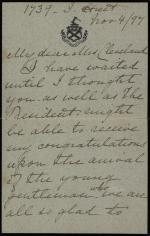 1739 - I Street
Nov 4/97
My dear Mrs. Cleveland
I have waited
until I thought
you as well as the
President might
be able to receive
my congratulations
upon the arrival
of the young
gentleman who we are
all so glad to